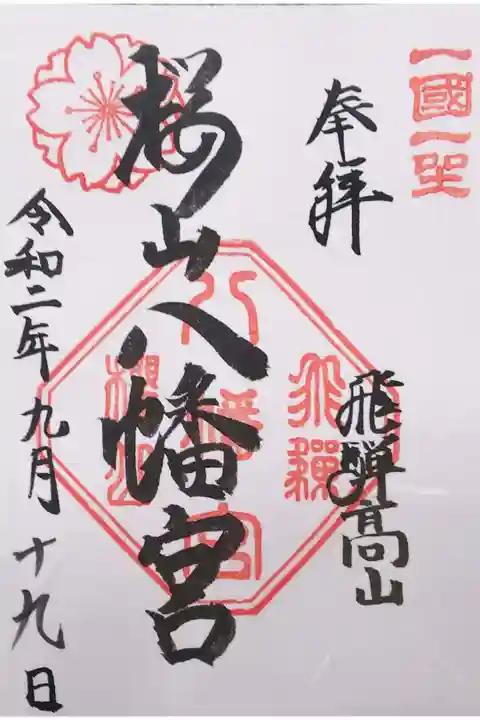 一國一社
奉拝
飛騨高山
飛驒
桜山八幡宮
八幡宮
櫻山
令和二年九月十九日